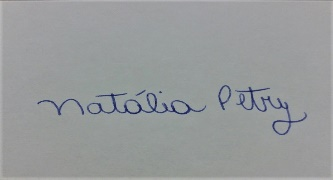 Natália Petry